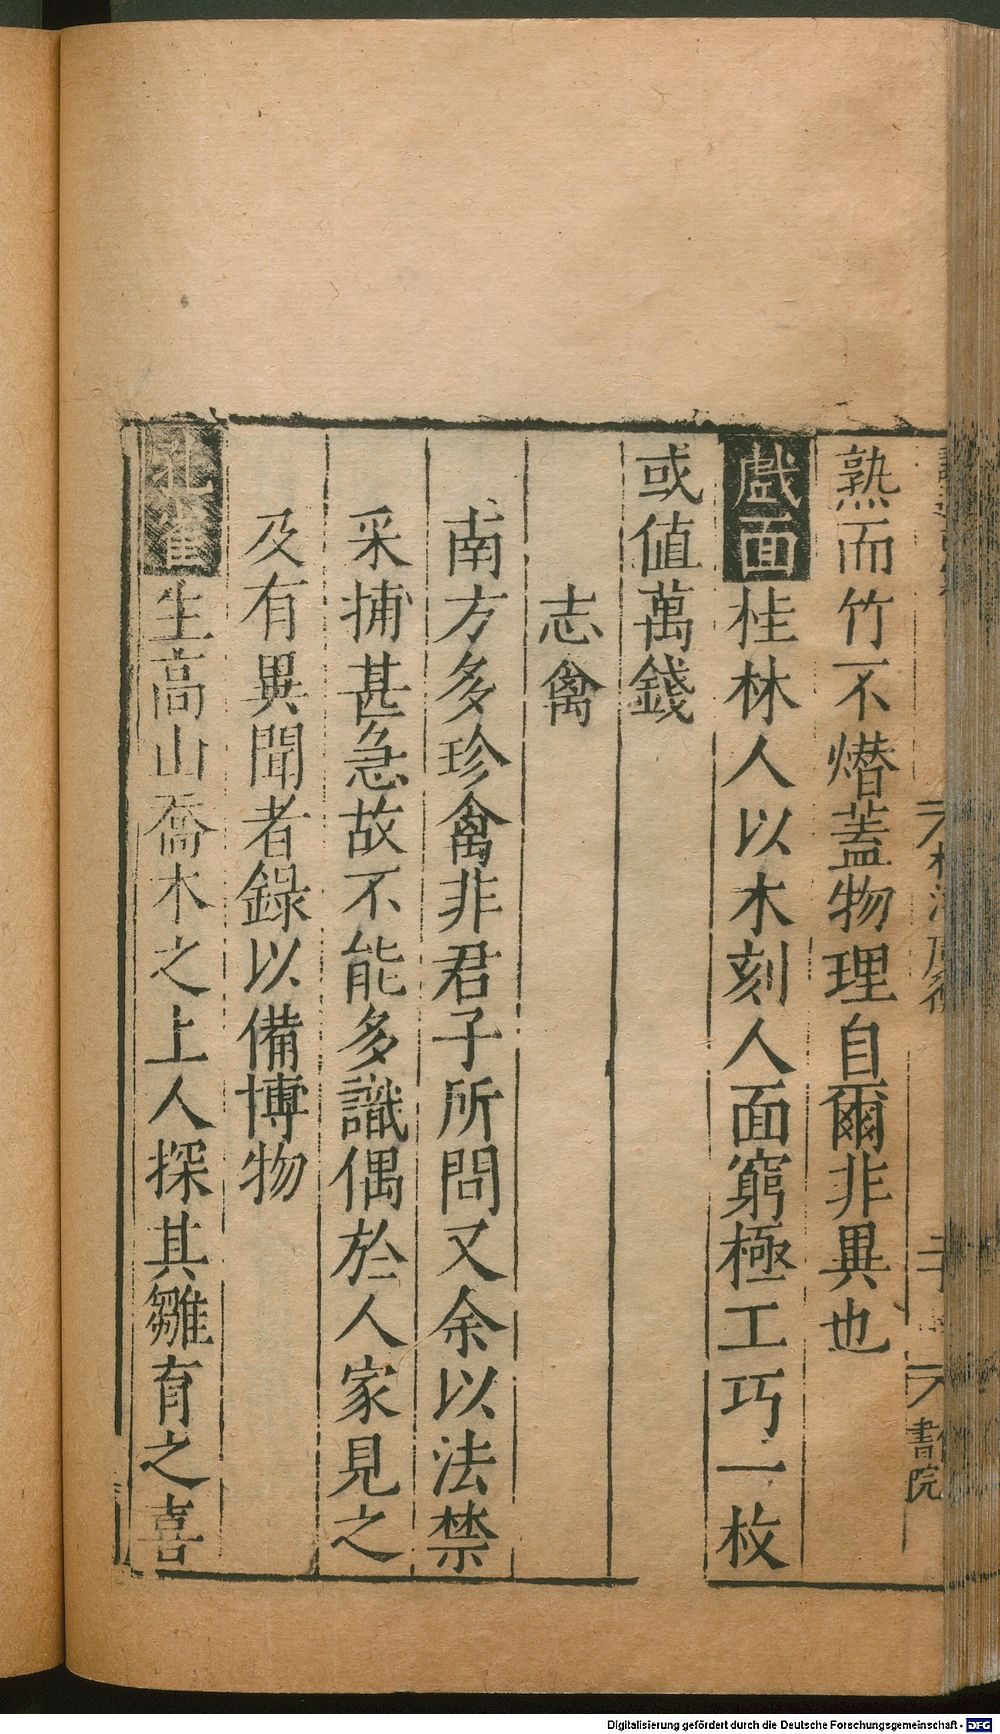 熟而竹不熸蓋物理自爾非異也
戲面桂林人以木刻人面窮極工巧一枚
或值萬錢
志禽
南方多珍禽非君子所問又余以法禁
采捕甚急故不能多識偶於人家見之
及有異聞者錄以備博物
孔雀生高山喬木之上人探其雛育之喜
書院
Digitalisierung gefördert durch die Deutsche Forschungsgemeinschaft - DFG